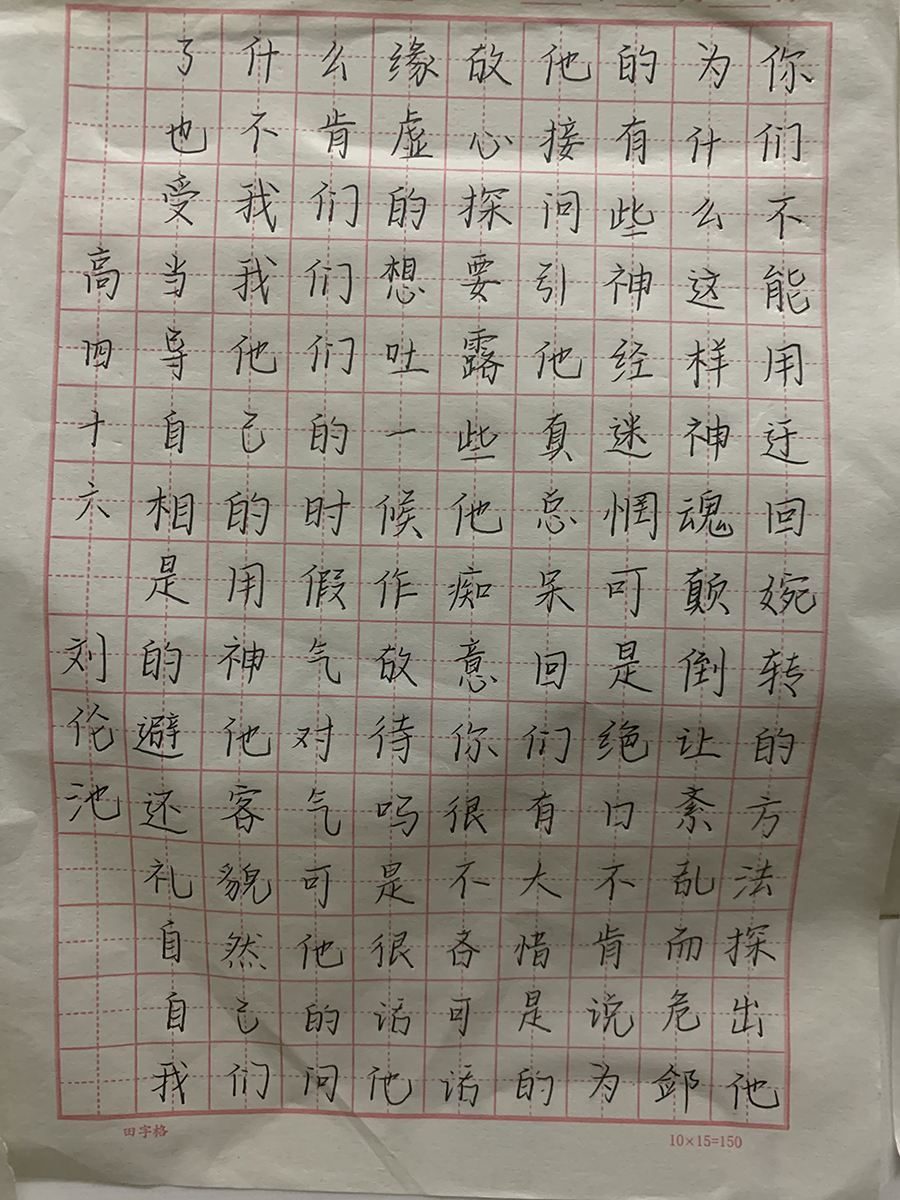 你们不能用迂回婉转的方法探出他
为什么这样神魂颠倒让紊乱而危
的有些神经迷惘可是绝口不肯说为
了什么缘故他
也不肯虚心接
受我们的探问
当我们想要引
导他们吐露他
自己的一些真
相的时候他总
是用假作痴呆
的神气故意回
避他对待你们
还客气吗很有
礼貌可是不大
自然他很吝惜
自己的话可是
我们问他话的
高四十六 刘伦池
田字格
10×15=150